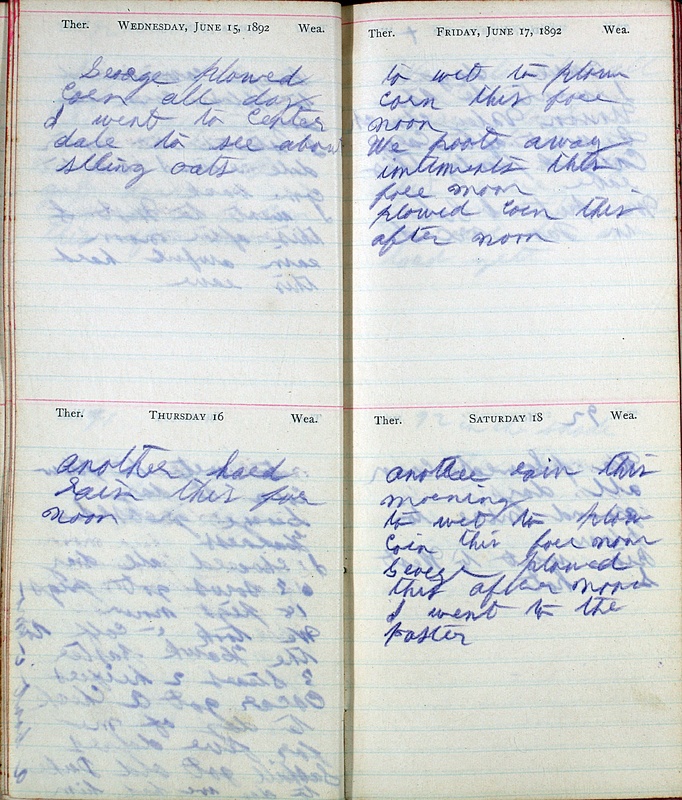 Ther. WEDNESDAY, JUNE 15, 1892 Wea.
George plowed
Corn all day
I went to Center
date to see about
slling oats
Ther. THURSDAY 16 Wea.
another hard
Rain this fore
noon
Ther. FRIDAY, JUNE 17, 1892 Wea.
to wet to plow
Corn this fore
noon
We poot away
intiments this
fore noon
plowed Corn this
after noon
Ther. SATURDAY 18 Wea.
another rain this
morning
to wet to plow
Corn this fore noon
George plowed
this after noon
I went to the
Paster